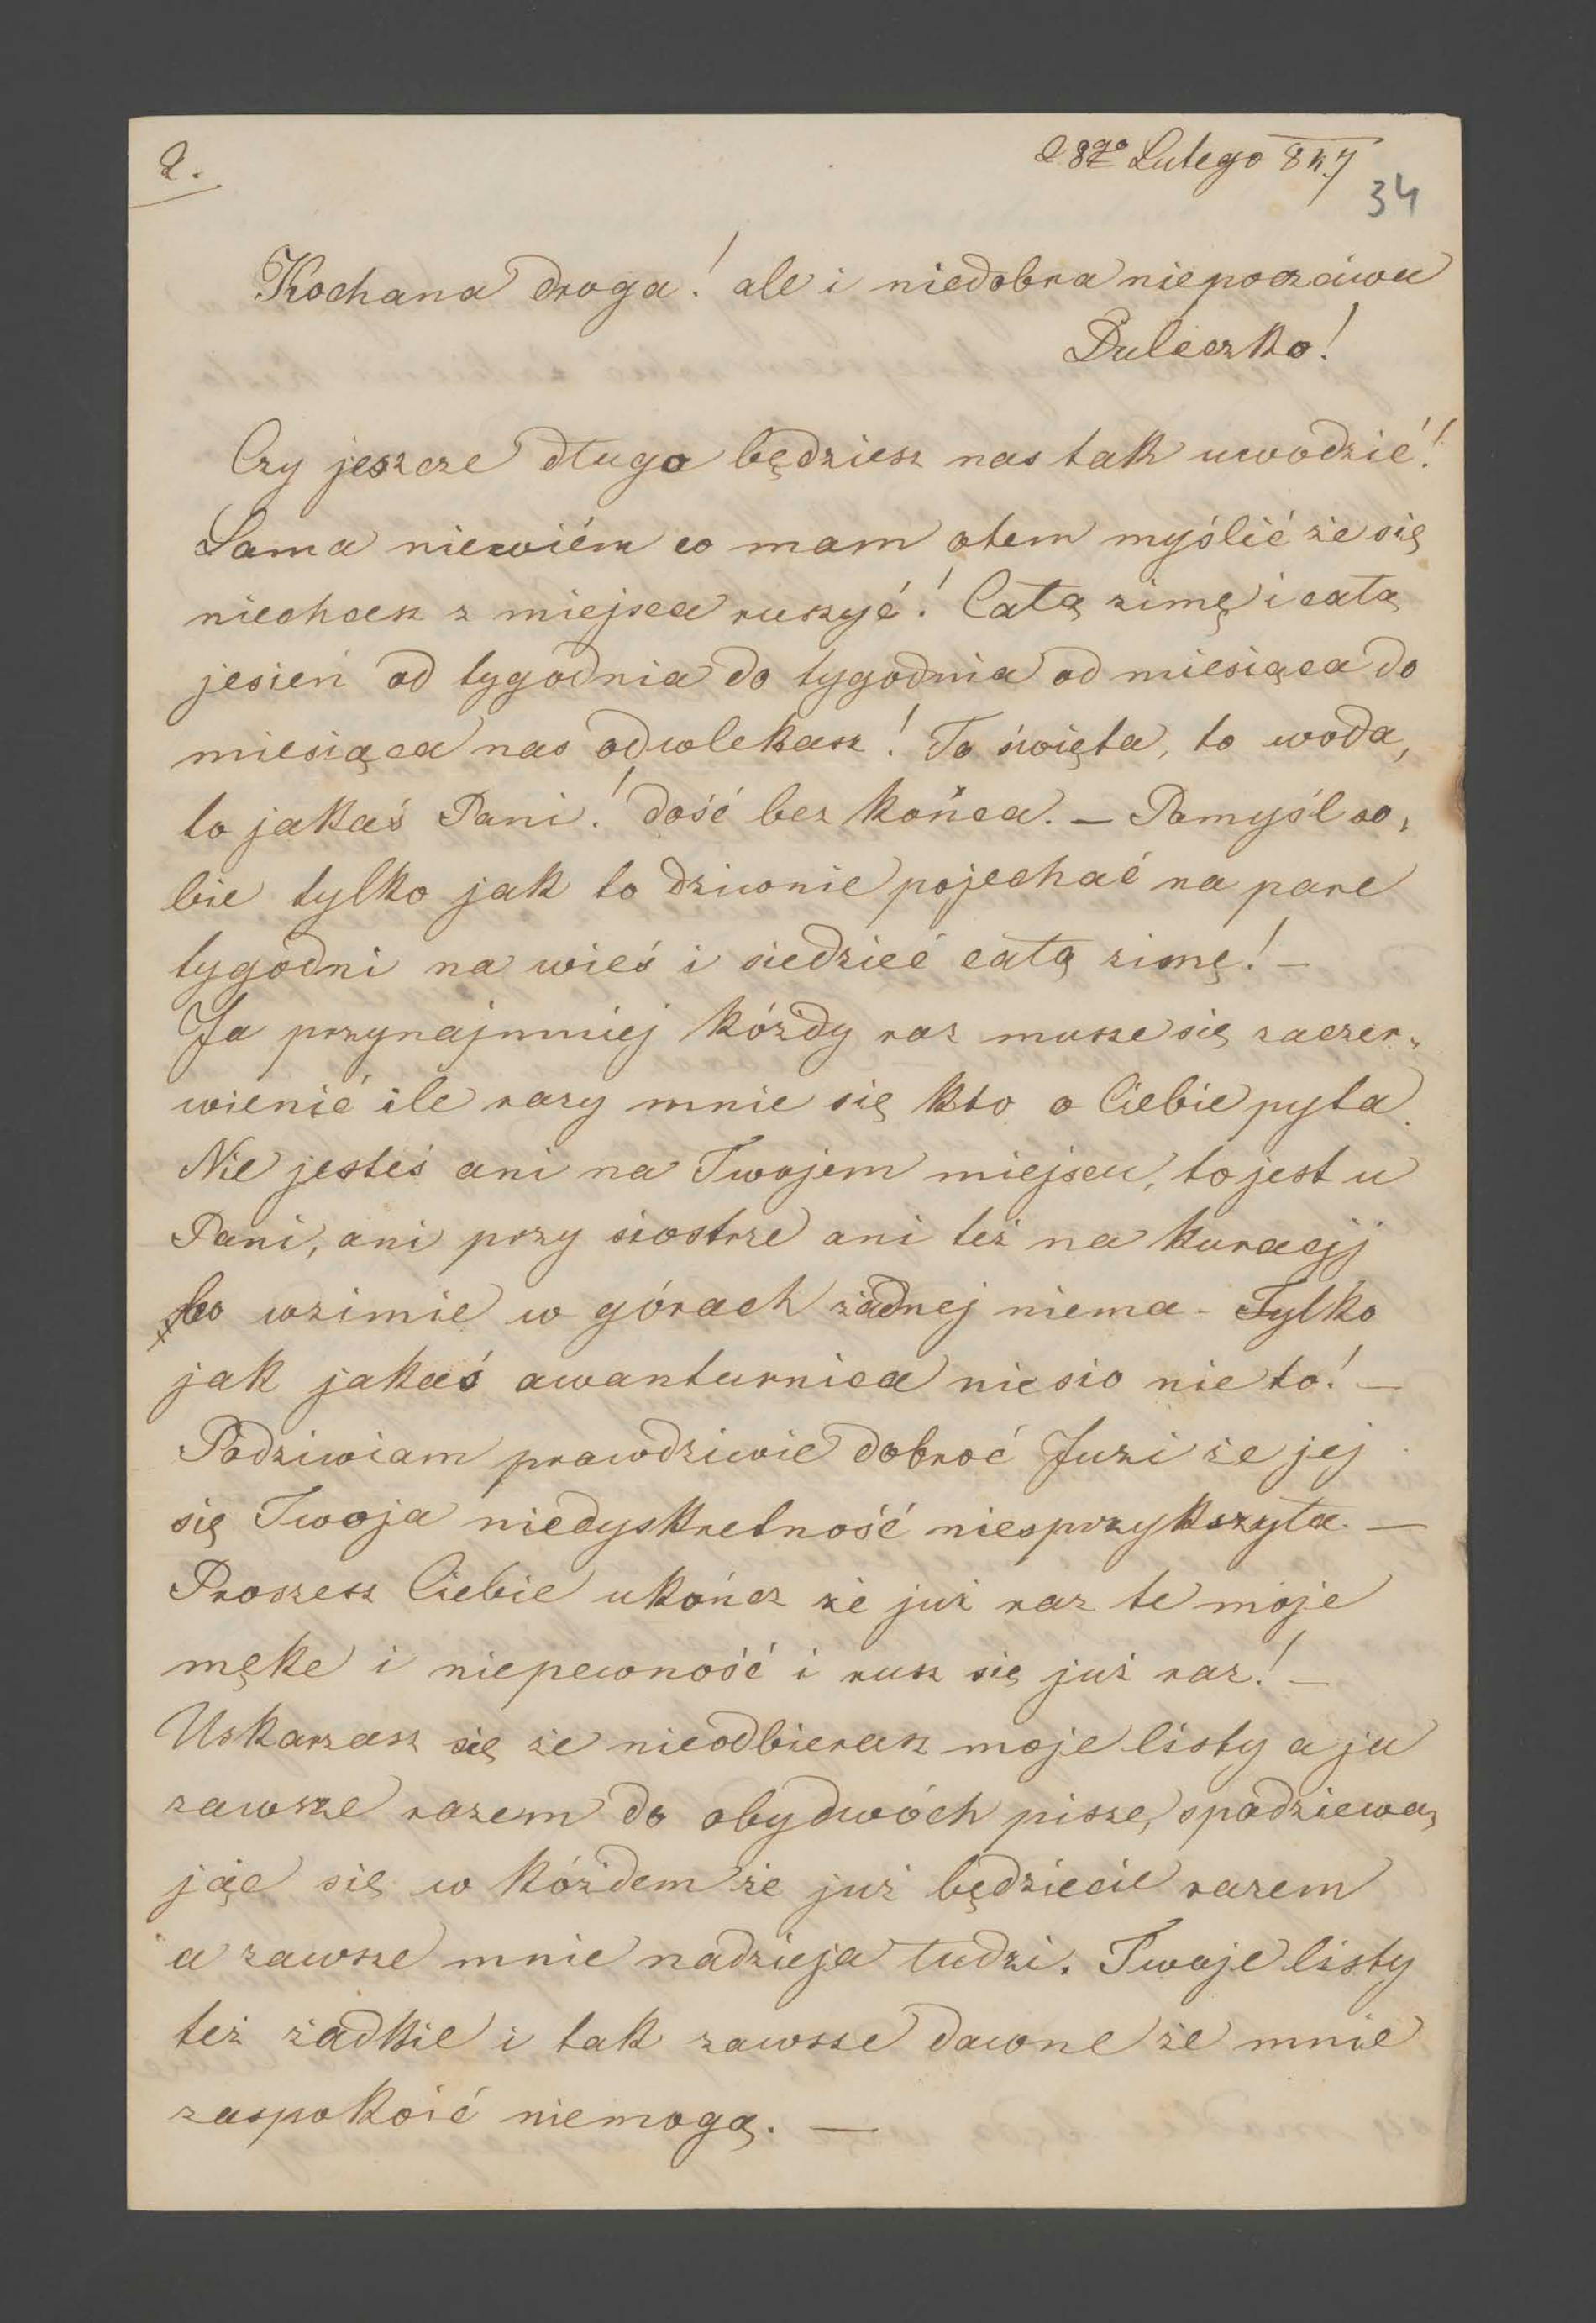 2.
28go Lutego 847
34
Kochana droga! ale i niedobra niepoczciwa
Duleczko!
Czy jeszcze długo będziesz nas tak uwodzić!
Sama niewiém co mam otem myślić że się
niechcesz z miejsca ruszyć! Całą zimę i całą
jesień od tygodnia do tygodnia od miesiąca do
miesiąca nas odwlekasz! To święta, to woda,
to jakaś Pani! dość bez końca. — Pomyśl so„
bie tylko jak to dziwnie pojechać na pare
tygodni na wieś i siedzieć całą zimę! —
Ja przynajmniej kóżdy raz musze się zaczer„
wienić ile razy mnie się kto o Ciebie pyta.
Nie jesteś ani na Twojem miejscu, to jest u
Pani, ani przy siostrze ani też na kuracjj
bo wzimie w górach żadnej niema - Tylko
jak jakaś awanturnica nie sio nie to! —
Podziwiam prawdziwie dobroć Juzi że jej
się Twoja niedyskretność niesprzykszyła. —
Proszesz Ciebie ukończ że już raz te moje
męke i niepewność i rusz się już raz! —
Uskarzasz się że nieodbierasz moje listy a ja
zawsze razem do obydwóch pisze, spodziewa„
jąc się w kóżdem że już będziecie razem
a zawsze mnie nadzieja łudzi. Twoje listy
też żadkie i tak zawsze dawne że mnie
zaspokoić niemogą. —